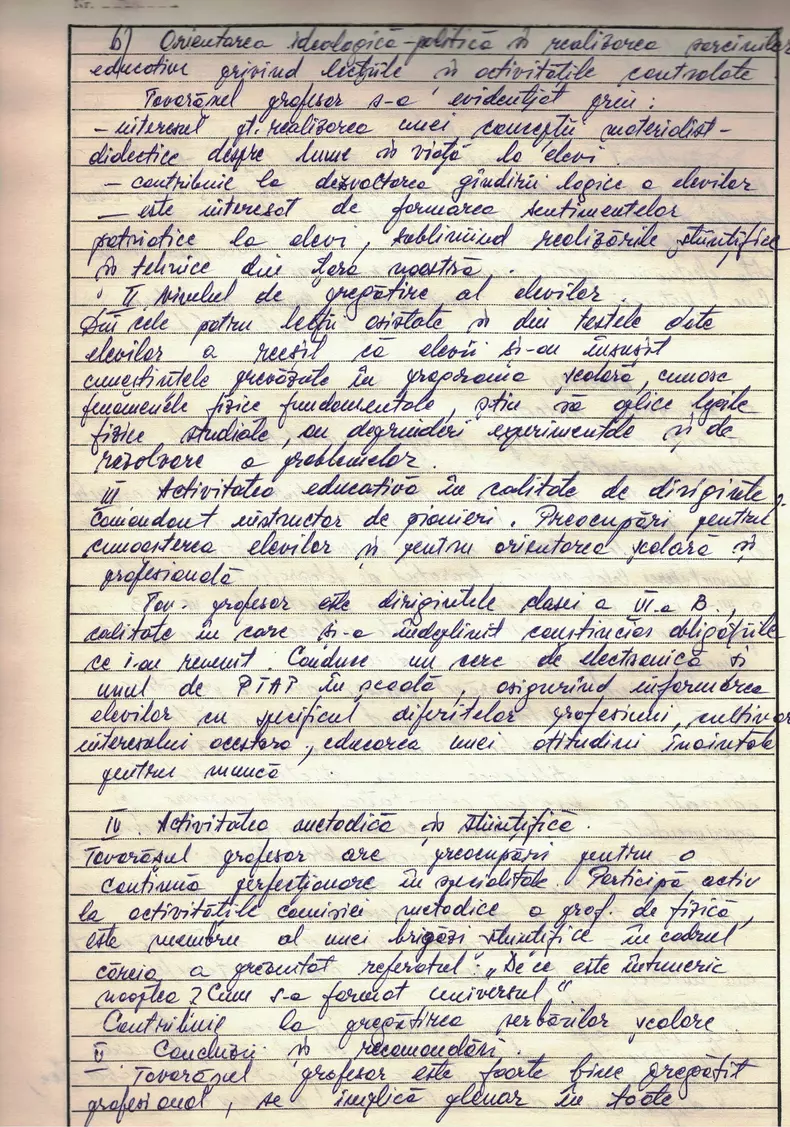 b) Orientarea ideologică-politică și realizarea sarcinilor
educative privind lecțiile și activitățile controlate
Tovarășul profesor s-a evidențiat prin:
- interesul pt. realizarea unei concepții materialist-
didectice despre lume și viață la elevi.
- contribuie la dezvoctarea gîndirii logice a elevilor
- este interesat de formarea sentimentelor
patriotice la elevi, subliniind realizările științifice
și tehnice din țara noastră.
II Nivelul de pregătire al elevilor
Din cele patru lecții asistate și din testele date
elevilor a reeșit că elevii și-au însușit
cunoștințele prevăzute în programa școlară, cunosc
fenomenele fizice fundamentale, știu să aplice legile
fizice studiate, au deprinderi experimentale și de
rezolvare a problemelor.
III Activitatea educativă în calitate de diriginte,
comandant instructor de pionieri. Preocupări pentru
cunoașterea elevilor și pentru orientarea școlară și
profesională
Tov. profesor este dirigintele clasei a VII-a B,
calitate în care și-a îndeplinit conștiincios obligațiile
ce i-au revenit. Conduce un cerc de electronică și
unul de PTAP în școală, asigurînd informarea
elevilor cu specificul diferitelor profesiuni, cultivar
interesului acestora, educarea unei atitudini înaintate
pentru muncă
IV. Activitatea metodică și științifică.
Tovarășul profesor are preocupări pentru o
continuă perfecționare în specialitate. Participă activ
la activitățile comisiei metodice a prof. de fizică,
este membru al unei brigăzi științifice în cadrul
căreia a prezentat referatul: „De ce este întuneric
noaptea? Cum s-a format universul"
Contribuie la pregătirea serbărilor școlare
V Concluzii și recomandări.
Tovarășul profesor este foarte bine pregătit
profesional, se implică plenar în toate